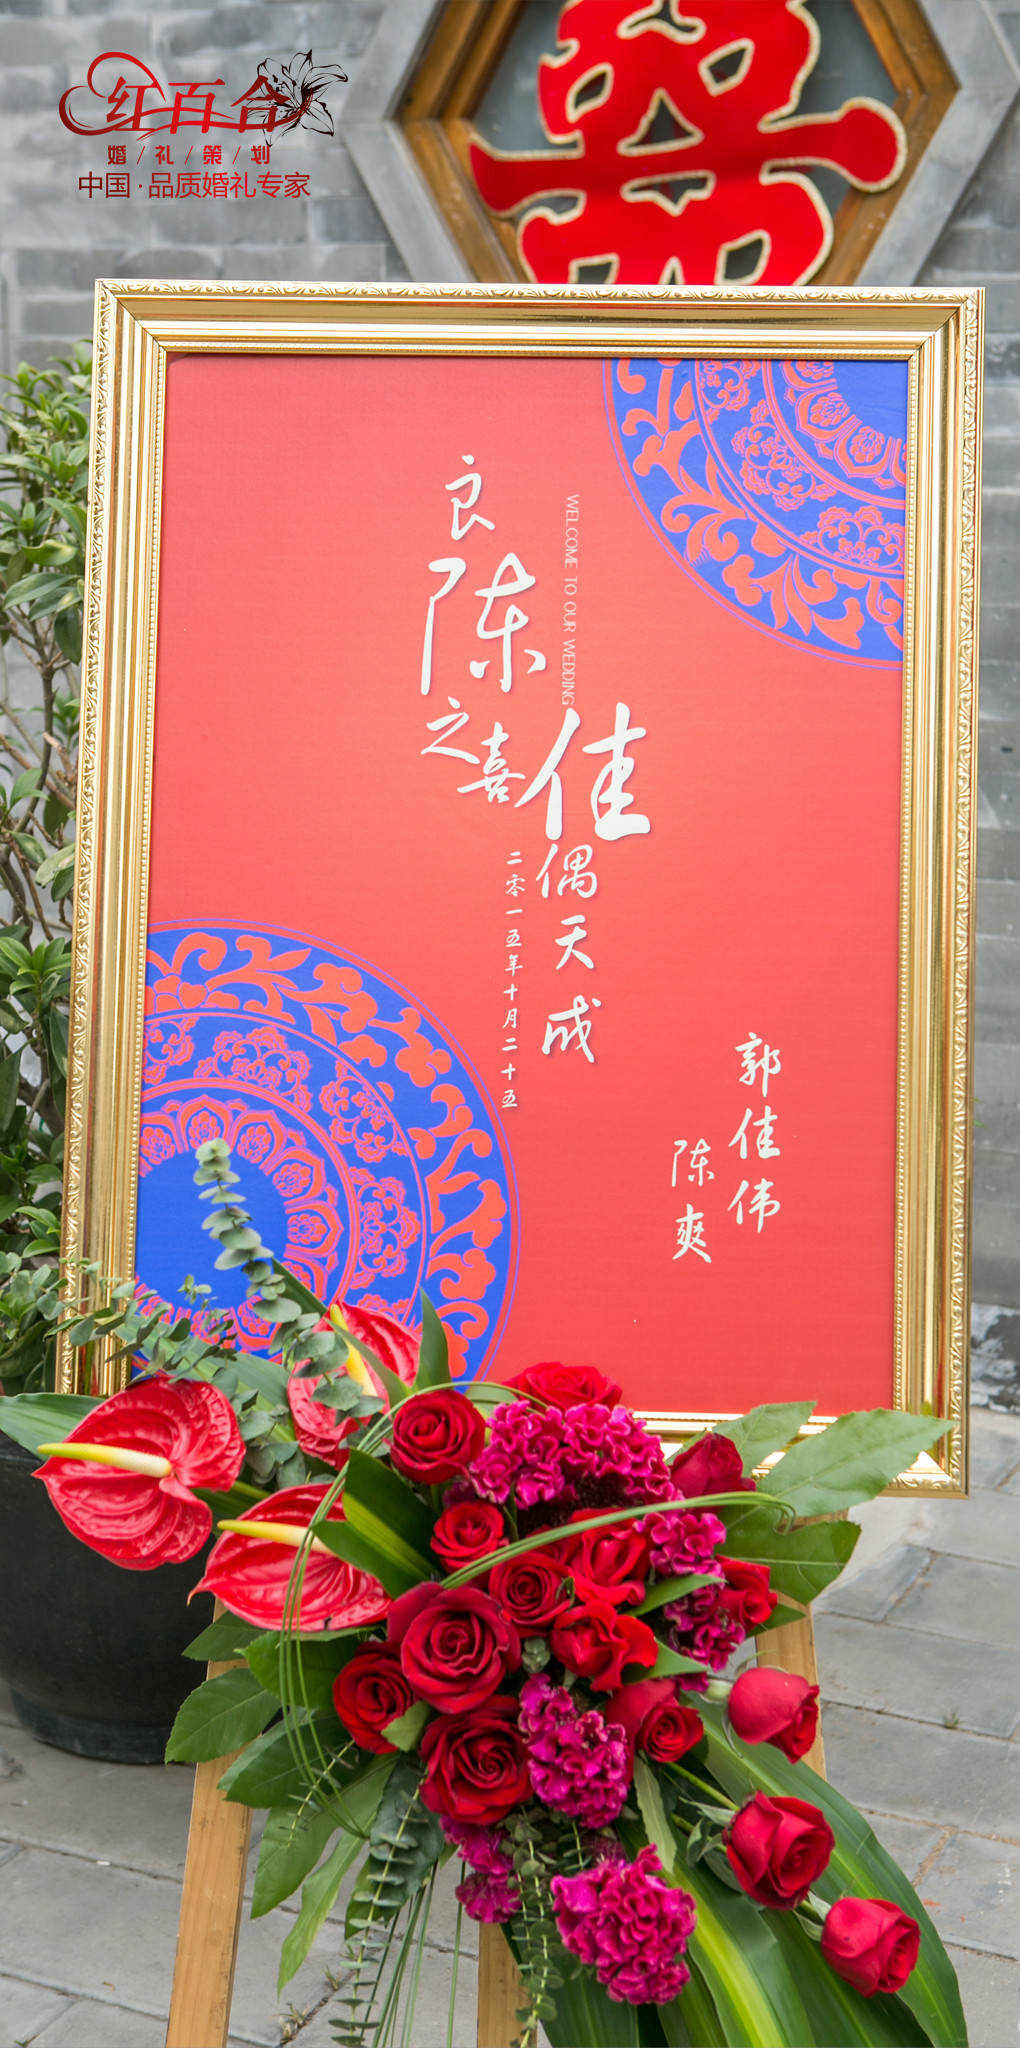 红百合
婚/礼/策/划
中国·品质婚礼专家
囍
良陈之喜
WELCOME TO OUR WEDDING
佳偶天成
二零一五年十月二十五
郭佳伟
陈爽